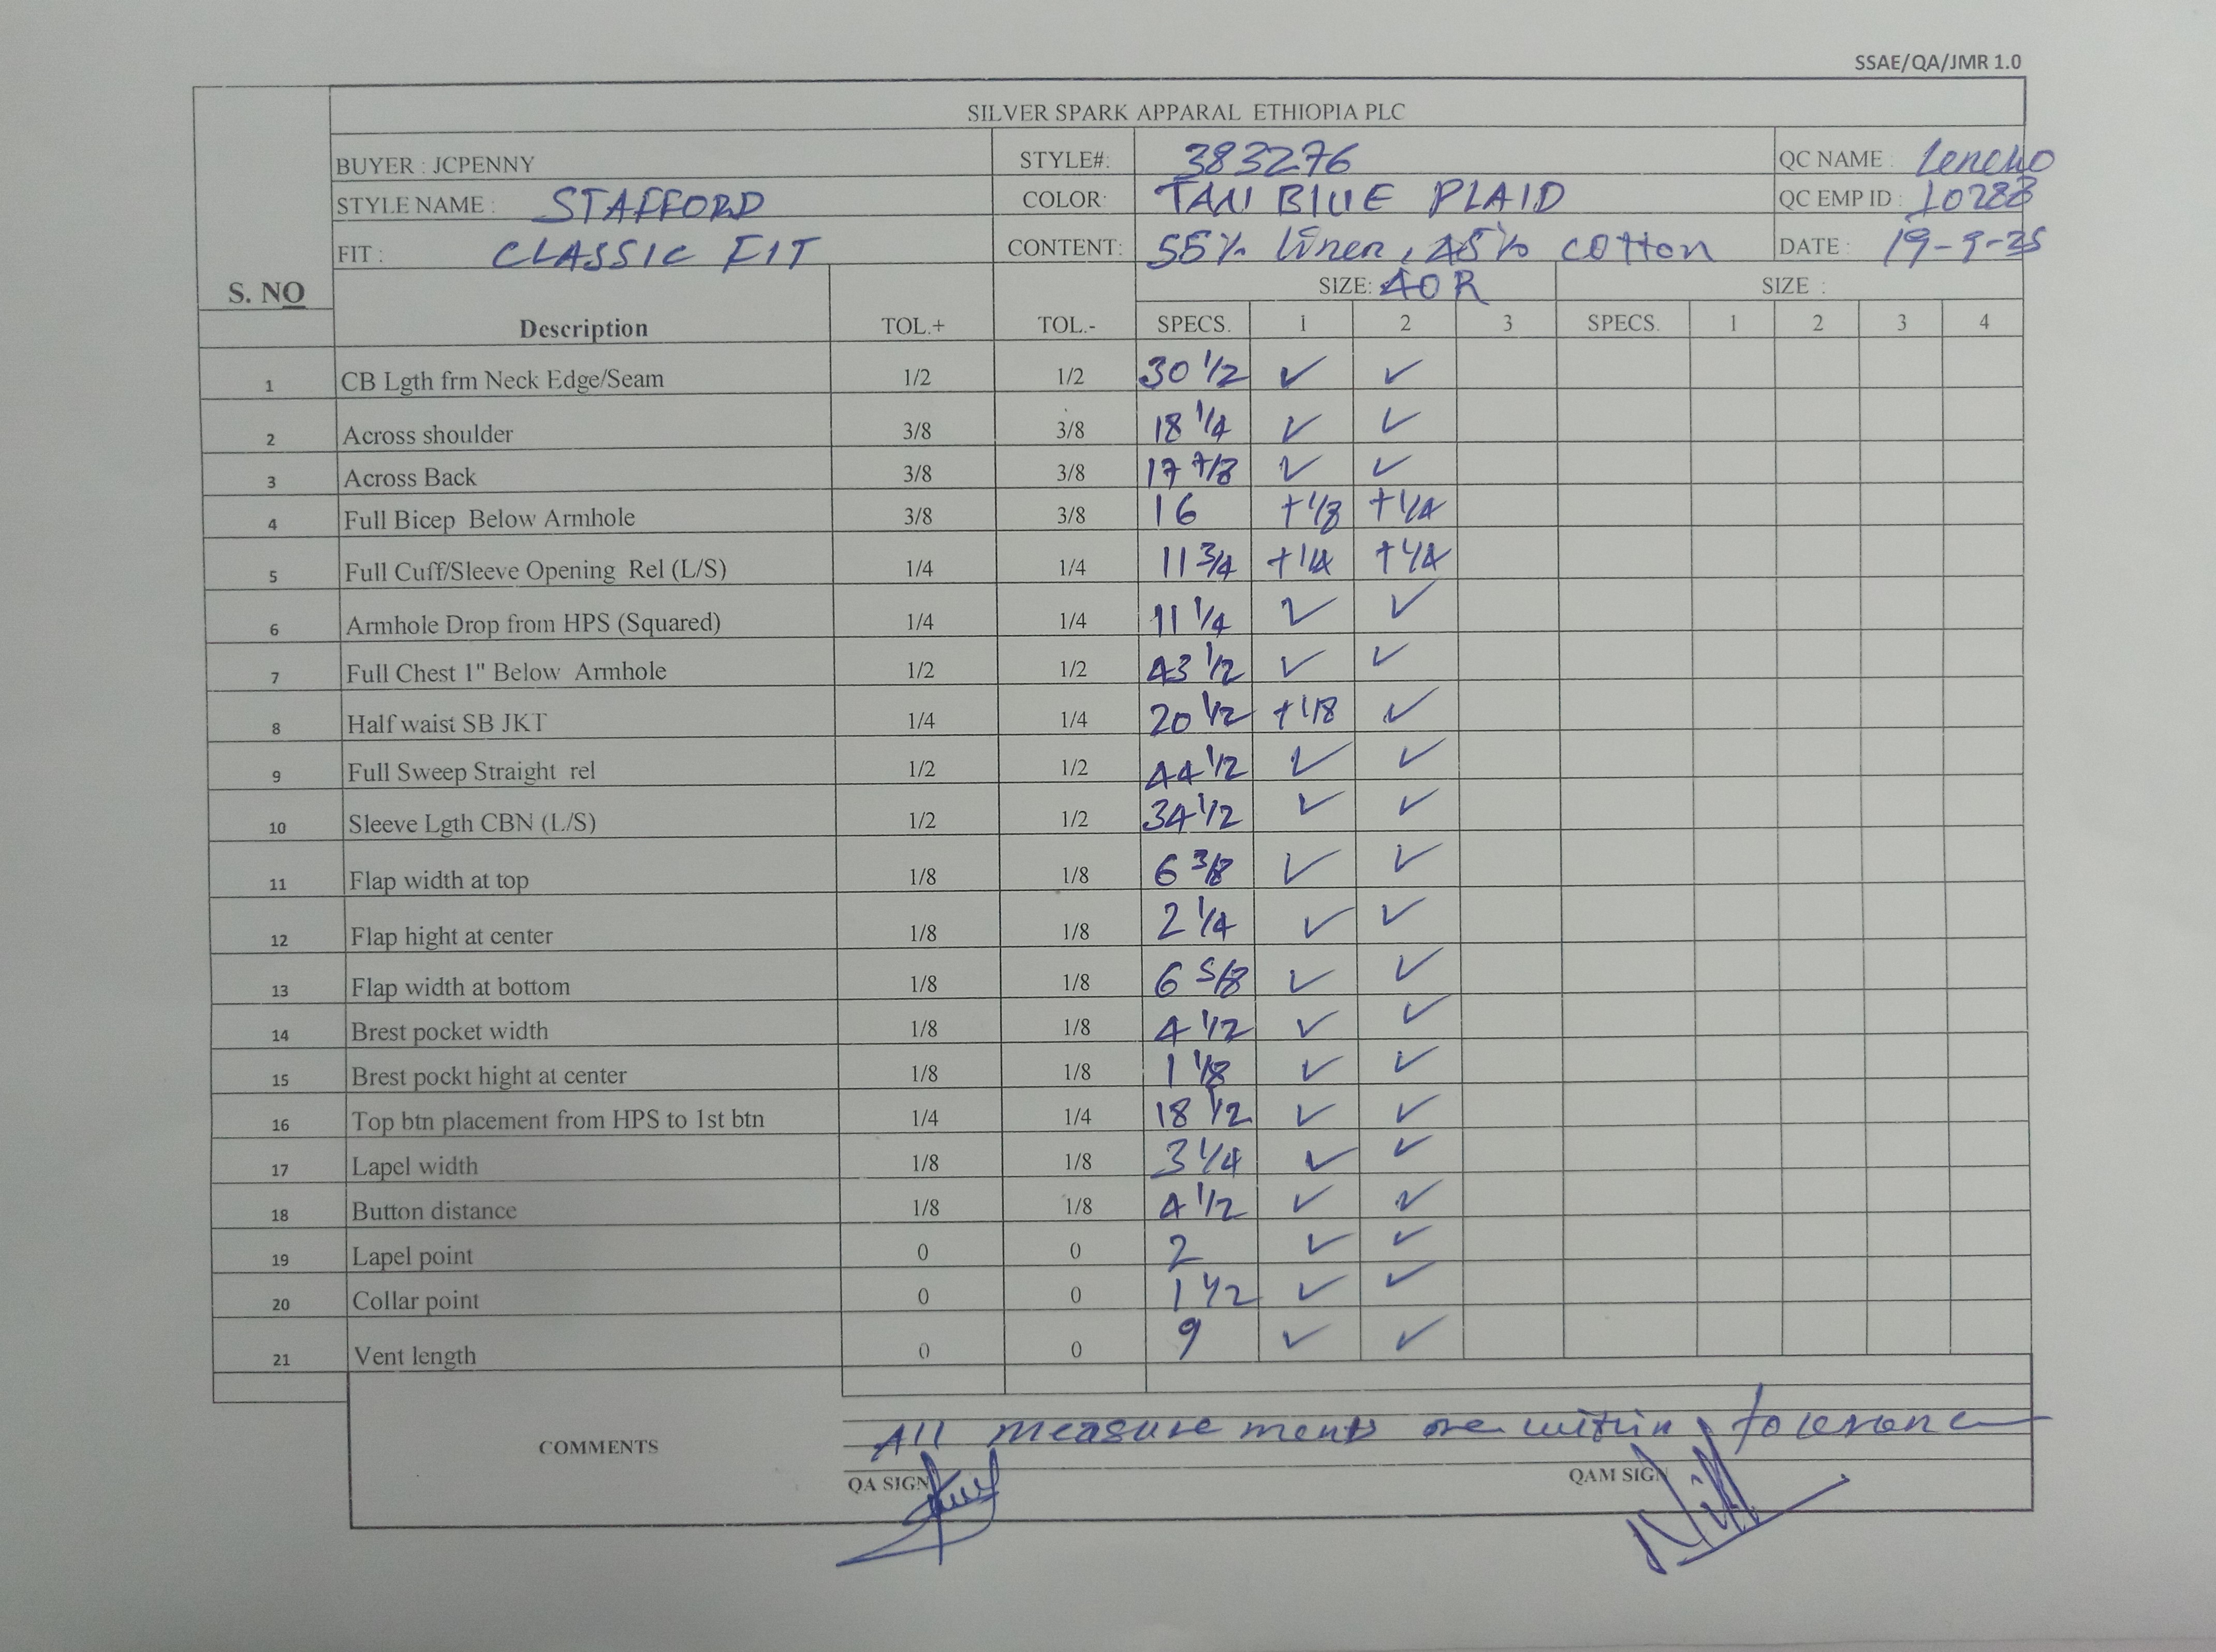 SSAE/QA/JMR 1.0
SILVER SPARK APPARAL ETHIOPIA PLC
BUYER : JCPENNY STYLE#: 383276 QC NAME : Lencho
STYLE NAME : STAFFORD COLOR: TAN BLUE PLAID QC EMP ID : 10288
FIT : CLASSIC FIT CONTENT: 55% linen, 45% cotton DATE : 19-9-25
S. NO SIZE: 40R SIZE :
Description TOL.+ TOL.- SPECS. 1 2 3 SPECS. 1 2 3 4
1 CB Lgth frm Neck Edge/Seam 1/2 1/2 30 1/2 ✓ ✓
2 Across shoulder 3/8 3/8 18 1/4 ✓ ✓
3 Across Back 3/8 3/8 17 7/8 ✓ ✓
4 Full Bicep Below Armhole 3/8 3/8 16 +1/8 +1/4
5 Full Cuff/Sleeve Opening Rel (L/S) 1/4 1/4 11 3/4 +1/4 +1/4
6 Armhole Drop from HPS (Squared) 1/4 1/4 11 1/4 ✓ ✓
7 Full Chest 1" Below Armhole 1/2 1/2 43 1/2 ✓ ✓
8 Half waist SB JKT 1/4 1/4 20 1/2 +1/8 ✓
9 Full Sweep Straight rel 1/2 1/2 44 1/2 ✓ ✓
10 Sleeve Lgth CBN (L/S) 1/2 1/2 34 1/2 ✓ ✓
11 Flap width at top 1/8 1/8 6 3/8 ✓ ✓
12 Flap hight at center 1/8 1/8 2 1/4 ✓ ✓
13 Flap width at bottom 1/8 1/8 6 5/8 ✓ ✓
14 Brest pocket width 1/8 1/8 4 1/2 ✓ ✓
15 Brest pockt hight at center 1/8 1/8 1 1/8 ✓ ✓
16 Top btn placement from HPS to 1st btn 1/4 1/4 18 1/2 ✓ ✓
17 Lapel width 1/8 1/8 3 1/4 ✓ ✓
18 Button distance 1/8 1/8 4 1/2 ✓ ✓
19 Lapel point 0 0 2 ✓ ✓
20 Collar point 0 0 1 1/2 ✓ ✓
21 Vent length 0 0 9 ✓ ✓
COMMENTS All measurements are within tolerance
QA SIGN QAM SIGN